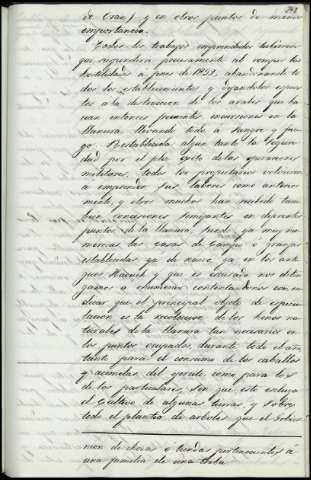 de Oran) y en otros puntos de menor
importancia.
Todos los trabajos emprendidos tuvieron
que suspenderse precisamente al romper las
hostilidades a fines de 1839, abandonando to
dos los establecimientos y quedando espues
tos a la destruccion de los arabes que ha
cian entonces frecuentes incursiones en la
llanura llevando todo a sangre y fue
go. Restablecida algun tanto la seguri
dad por el feliz exito de las operaciones
militares, todos los propietarios volvieron
a emprender sus labores como anterior
mente, y otros muchos han pedido tam
bien concesiones semejantes en diferentes
puntos de la llanura, siendo ya muy nu
merosas las casas de campo o granjas
establecidas ya de nuevo, ya en los anti
guos Haouch y que es escusado nos deten
gamos a enumerar contentandonos con in
dicar que el principal objeto de especu
lacion es la recoleccion de los henos na
turales de la llanura tan necesarios en
los puntos ocupados durante todo el año
tanto para el consumo de los caballos
y acemilas del ejercito como para los
de los particulares, sin que esto escluya
el cultivo de algunas tierras, y sobre
todo el plantio de arboles que el Gobier
nion de chozas o tiendas pertenecientes a
una familia de una tribu